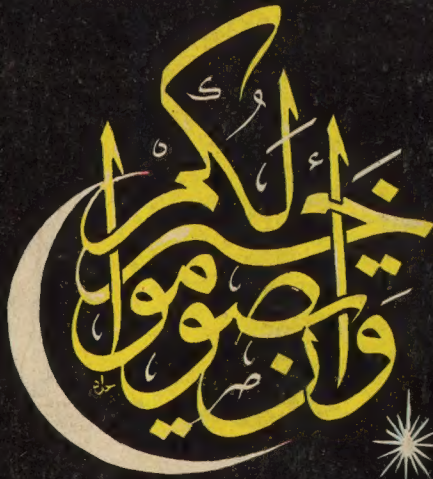 وأن تصوموا خير لكم